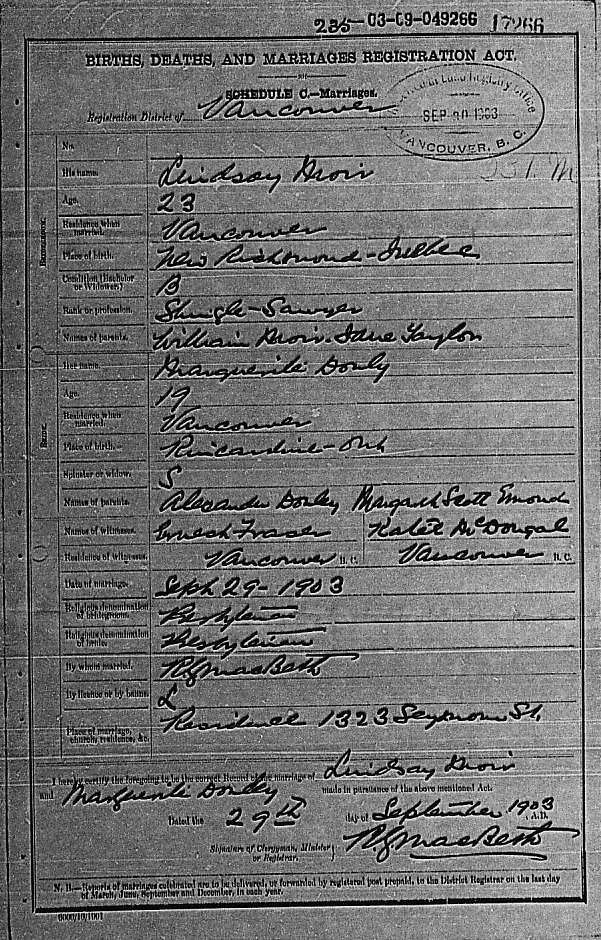 235-03-09-049266 17266
BIRTHS, DEATHS, AND MARRIAGES REGISTRATION ACT.
SCHEDULE C.—Marriages.
Registration District of Vancouver
Land Registry Office
SEP 30 1903
VANCOUVER, B. C.
No.
BRIDEGROOM.
His name. Lindsay
Age. 23
Residence when married. Vancouver
Place of birth. New Richmond - Quebec
Condition (Bachelor or Widower.) B
Rank or profession. Shingle-Sawyer
Names of parents. William Jane Taylor
BRIDE.
Her name. Marguerite
Age. 19
Residence when married. Vancouver
Place of birth.— Kincardine - Ont
Spinster or widow. S
Names of parents. Alexander Margaret Scott
Names of witnesses. Ernest Fraser Katie McDougal
Residence of witnesses. Vancouver B. C. Vancouver B. C.
Date of marriage. Sept 29 - 1903
Religious denomination of bridegroom.
Religious denomination of bride. Presbyterian
By whom married. MacBeth
By licence or by banns. L
Place of marriage, church, residence, &c. Residence 1323 Seymour St.
I hereby certify the foregoing to be the correct Record of the marriage of Lindsay
and Marguerite made in pursuance of the above mentioned Act.
Dated the 29th day of September 1903 A.D.
Signature of Clergyman, Minister or Registrar, MacBeth
N. B.—Reports of marriages celebrated are to be delivered, or forwarded by registered post prepaid, to the District Registrar on the last day
of March, June, September and December, in each year.
6000/10/1901